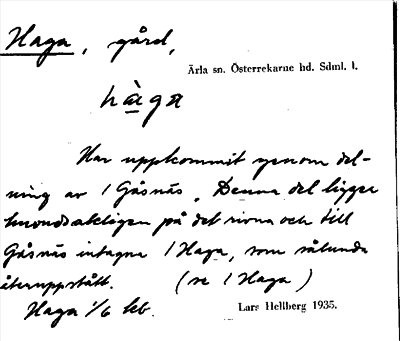 Haga, gård,
Ärla sn. Österrekarne hd. Sdml. l.
hàga
Har uppkommit genom del-
ning av 1 Gåsnäs. Denna del ligger
huvudsakligen på det rivna och till
Gåsnäs intagna 1 Haga, som sålunda
återuppstått. (se 1 Haga)
Haga 1/6 lb.
Lars Hellberg 1935.